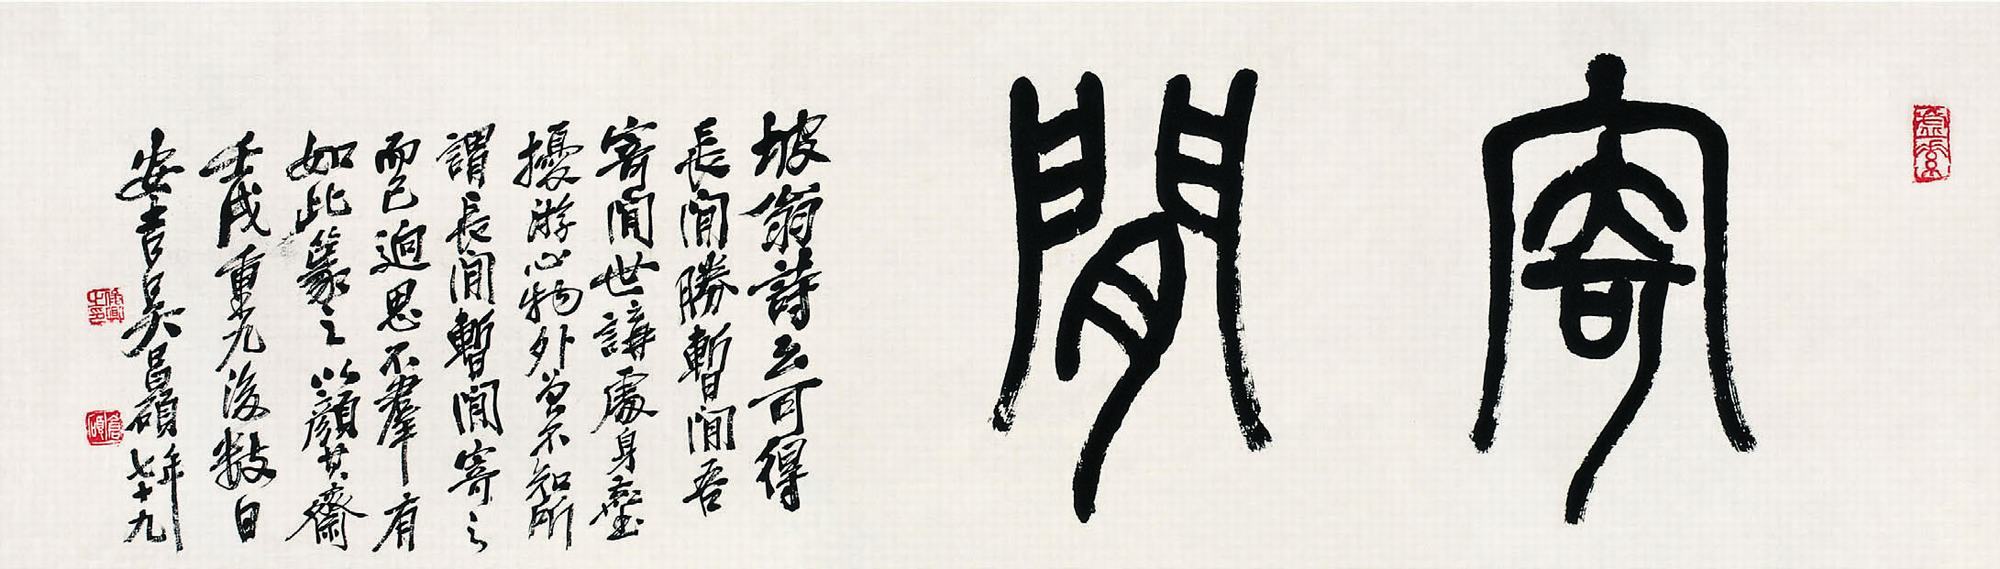 寄閒
坡翁詩云可得
長閒勝暫閒吾
寄閒世講處身塵
擾游心物外兯不知所
謂長閒暫閒寄之
而已迥思不羣有
如此篆之以顔其齋
壬戌重九後數日
安吉吳昌碩年七十九